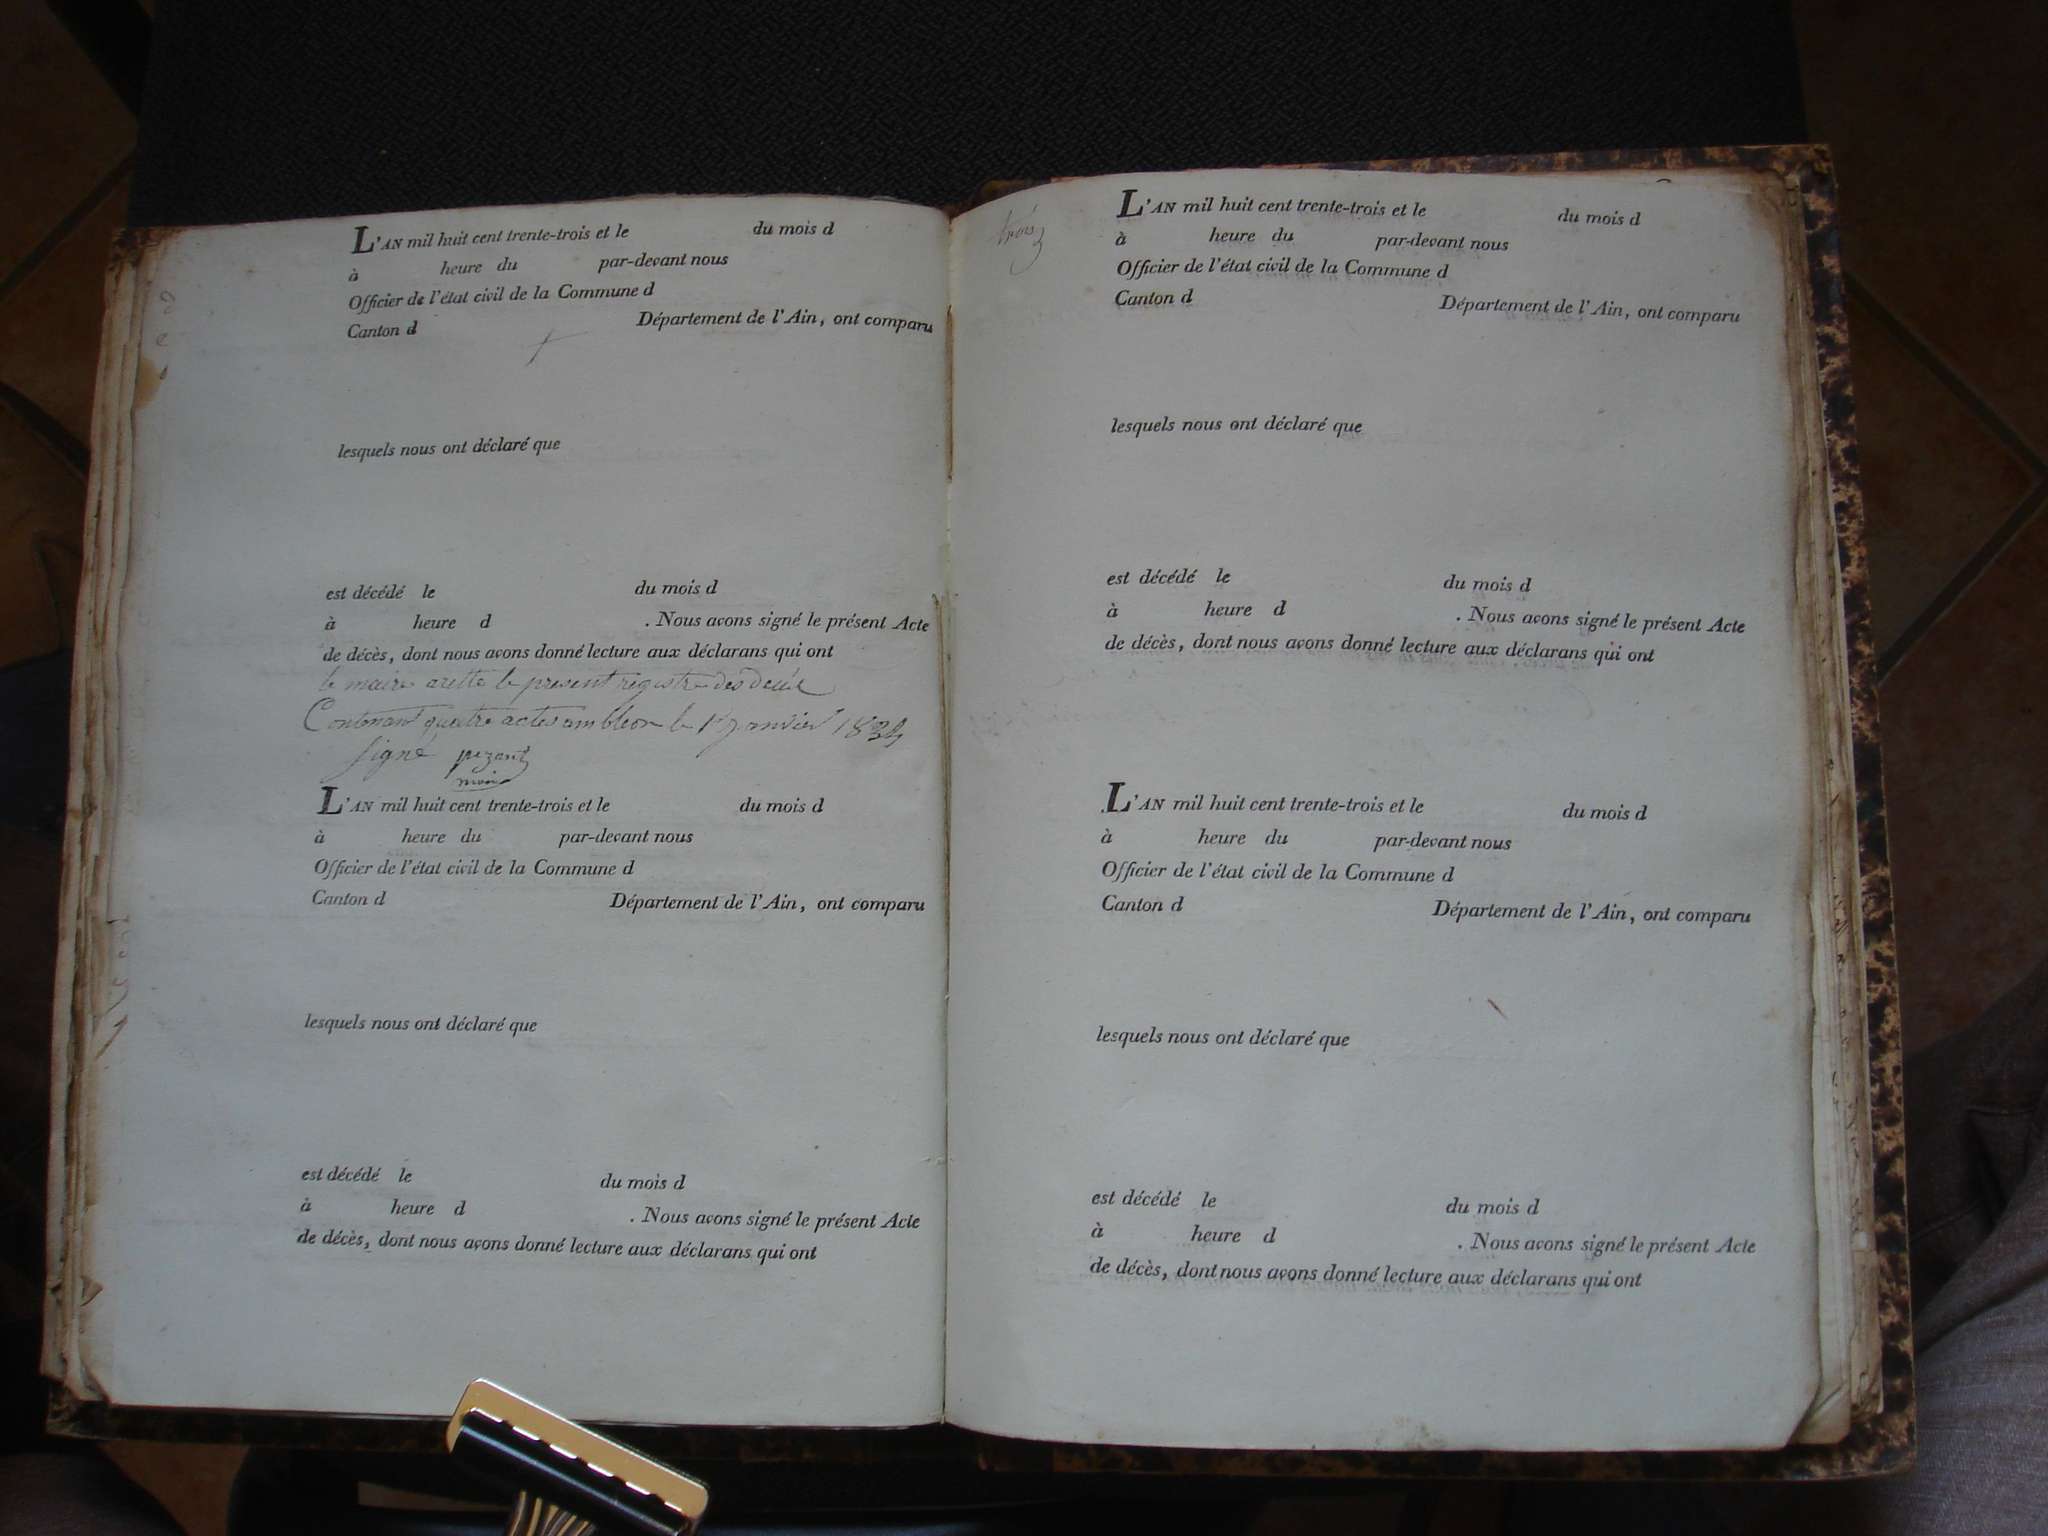 L'AN mil huit cent trente-trois et le du mois d
à heure du par-devant nous
Officier de l'état civil de la Commune d
Canton d Département de l'Ain, ont comparu
lesquels nous ont déclaré que
est décédé le du mois d
à heure d . Nous avons signé le présent Acte
de décès, dont nous avons donné lecture aux déclarans qui ont
le maire arette le present registre des décés
Contenant quatre actes ambleon le 1er janvier 1834
signé pezant
maire
L'AN mil huit cent trente-trois et le du mois d
à heure du par-devant nous
Officier de l'état civil de la Commune d
Canton d Département de l'Ain, ont comparu
lesquels nous ont déclaré que
est décédé le du mois d
à heure d . Nous avons signé le présent Acte
de décès, dont nous avons donné lecture aux déclarans qui ont
trois
L'AN mil huit cent trente-trois et le du mois d
à heure du par-devant nous
Officier de l'état civil de la Commune d
Canton d Département de l'Ain, ont comparu
lesquels nous ont déclaré que
est décédé le du mois d
à heure d . Nous avons signé le présent Acte
de décès, dont nous avons donné lecture aux déclarans qui ont
L'AN mil huit cent trente-trois et le du mois d
à heure du par-devant nous
Officier de l'état civil de la Commune d
Canton d Département de l'Ain, ont comparu
lesquels nous ont déclaré que
est décédé le du mois d
à heure d . Nous avons signé le présent Acte
de décès, dont nous avons donné lecture aux déclarans qui ont